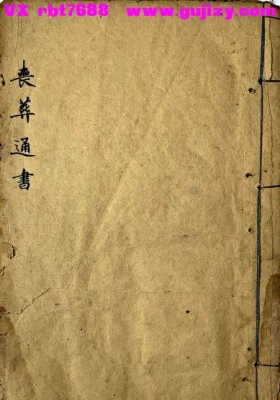 VX rbt7688 www.gujizy.com
喪葬通書